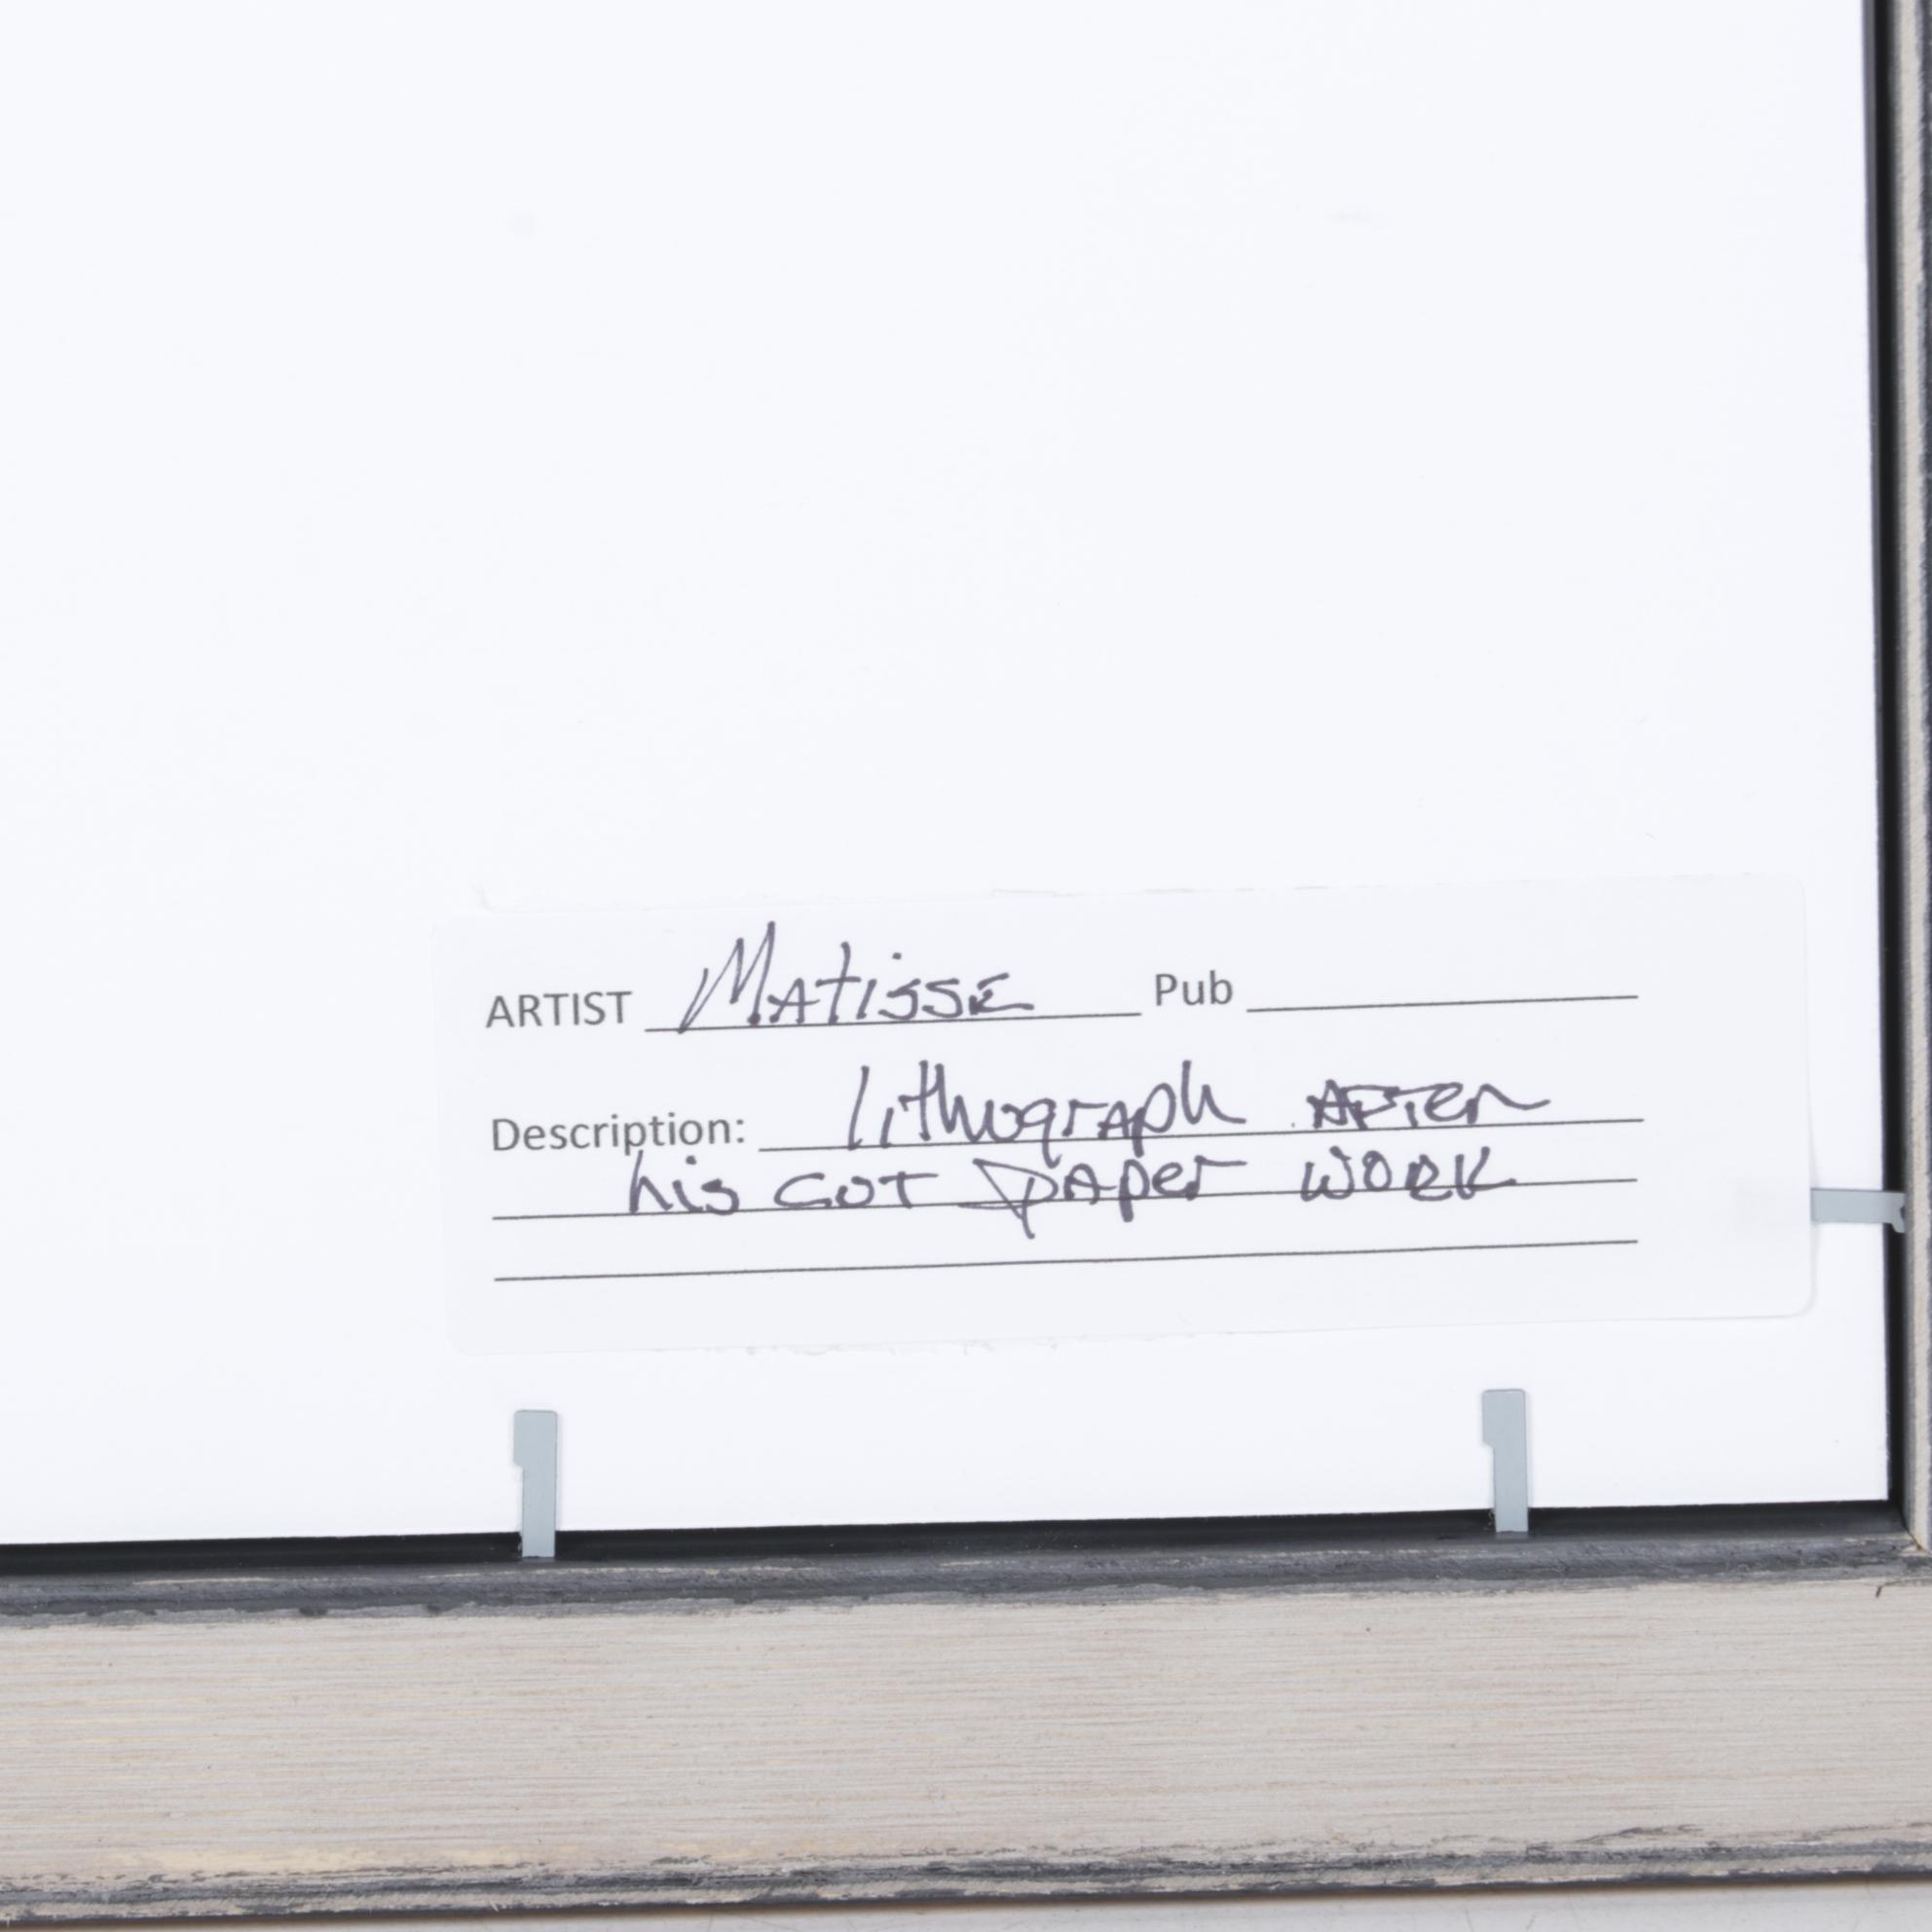 ARTIST Matisse Pub
Description: lithograph AFTER
his CUT PAPER WORK